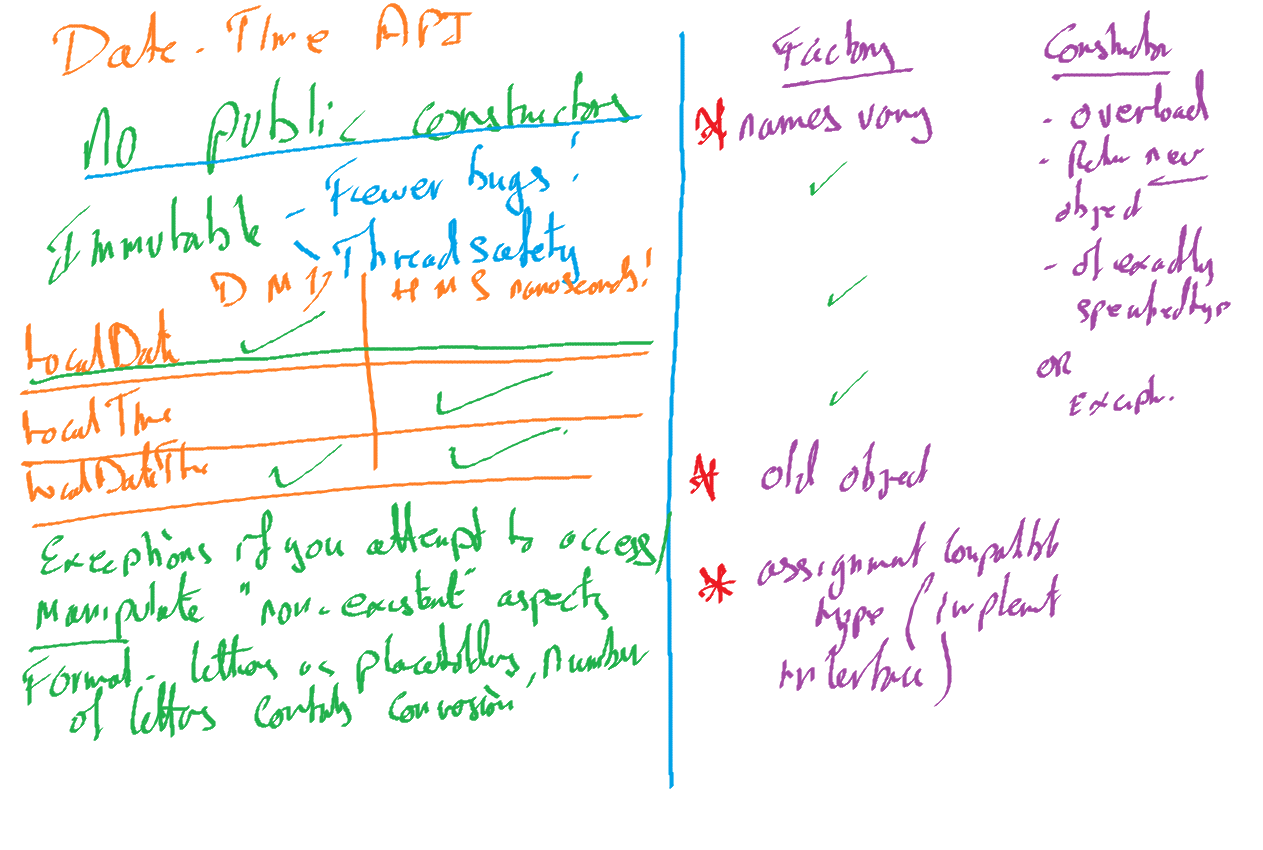 Date-Time API
No public constructors
Immutable - Fewer bugs!
- Thread safety
D M Y H M S nanoseconds!
LocalDate
LocalTime
LocalDateTime
Exceptions if you attempt to access/
manipulate "non-existent" aspects
Format - letters as placeholders, number
of letters controls conversion
Factory
* names vary
* old object
* assignment compatible
type (implement
interface)
Constructor
- overload
- Return new
object
- of exactly
specified type
OR
Except.